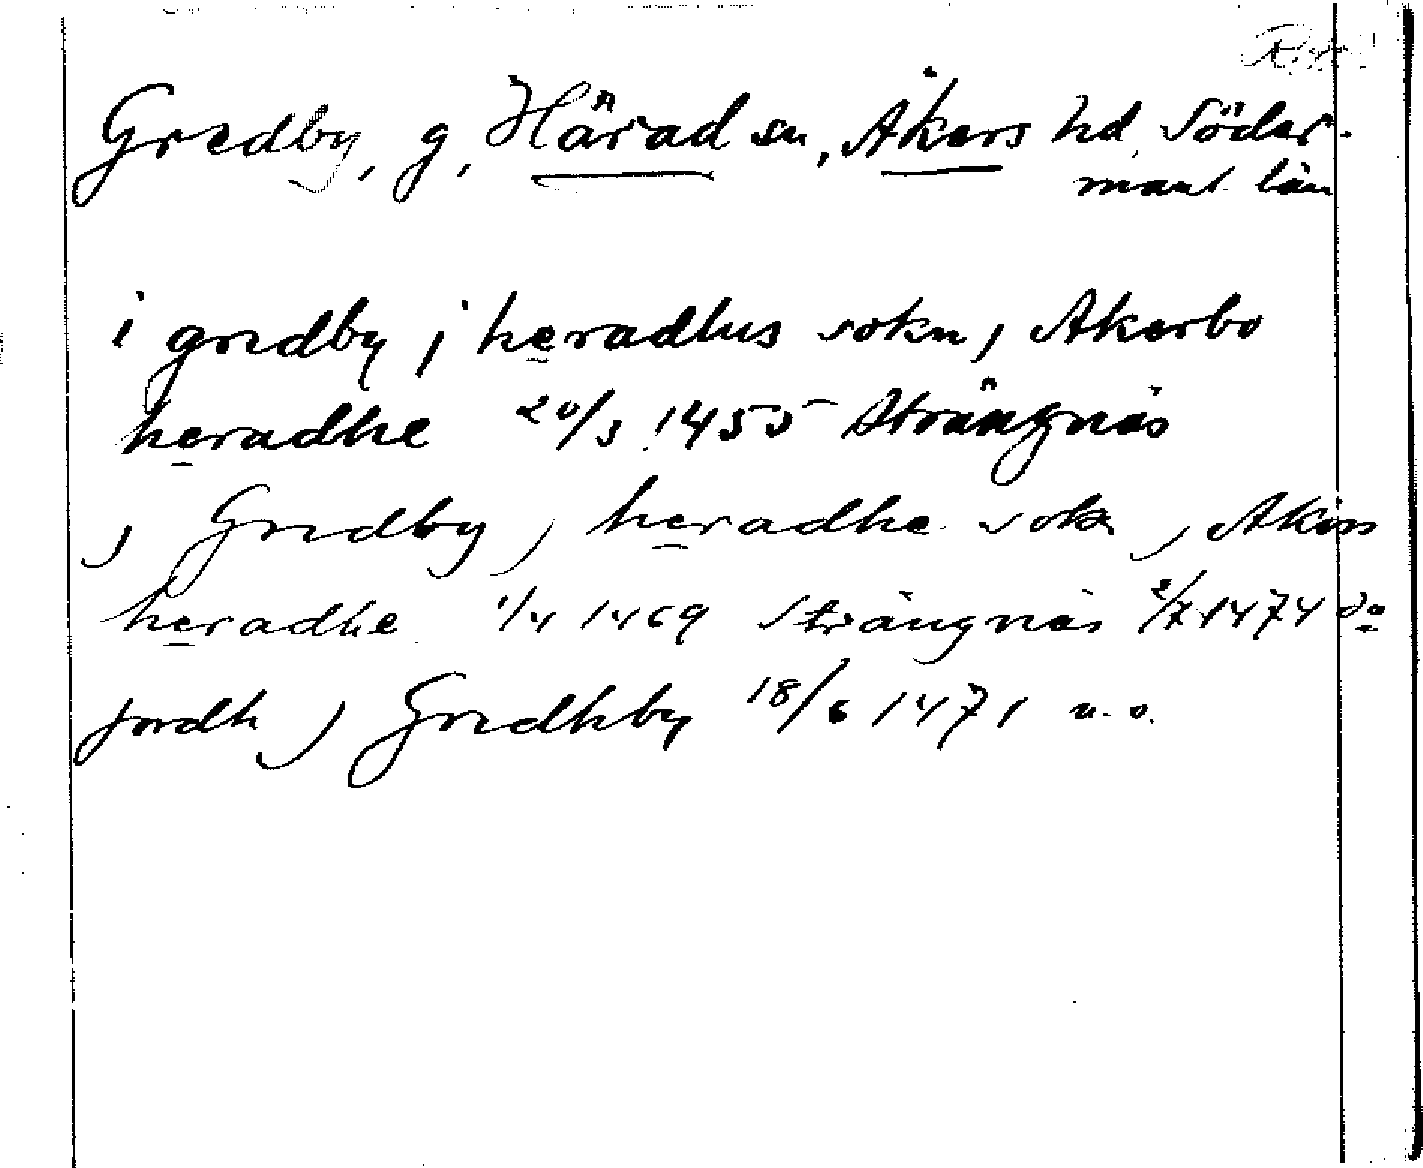 Gredby, g, Härad sn, Åkers hd, Söder-
manl. län
i gredby j heradhus sokn j Akerbo
heradhe 20/3 1455 Strängnäs
j Gredby j heradhe sokn j Akers
heradhe 1/4 1469 Strängnäs 2/7 1474 do
jordh j Gredhby 18/6 1471 u. o.